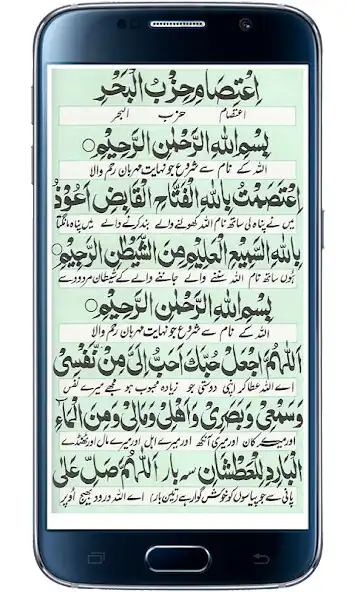 اِعْتِصَامِ حِزْبُ الْبَحْرِ
اعتصام حزب البحر
بِسْمِ اللهِ الرَّحْمٰنِ الرَّحِيْمِ
اللہ کے نام سے شروع جو نہایت مہربان رحم والا
اِعْتَصَمْتُ بِاللهِ الْفَتَّاحِ الْقَابِضِ اَعُوْذُ
میں نے پناہ لی ساتھ نام اللہ کھولنے والے بند کرنے والے میں پناہ مانگتا
بِاللهِ السَّمِيْعِ الْعَلِيْمِ مِنَ الشَّيْطٰنِ الرَّجِيْمِ
ہوں ساتھ نام اللہ سننے والے جاننے والے کے شیطان مردود سے
بِسْمِ اللهِ الرَّحْمٰنِ الرَّحِيْمِ
اللہ کے نام سے شروع جو نہایت مہربان رحم والا
اَللّٰهُمَّ اجْعَلْ حُبَّكَ اَحَبَّ اِلَىَّ مِنْ نَّفْسِىْ
اے اللہ عطا کر اپنی دوستی جو زیادہ محبوب ہو مجھے میرے نفس
وَسَمْعِىْ وَبَصَرِىْ وَاَهْلِىْ وَمَالِىْ وَمِنَ الْمَآءِ
اور میرے کان اور میری آنکھ اور میرے اہل اور میرے مال اور ٹھنڈے
الْبَارِدِ لِلْعَطْشَانِ سہ بار اَللّٰهُمَّ صَلِّ عَلٰى
پانی سے جو پیاسوں کو خوش گوار ہے (تین بار) اے اللہ درود بھیج اُوپر